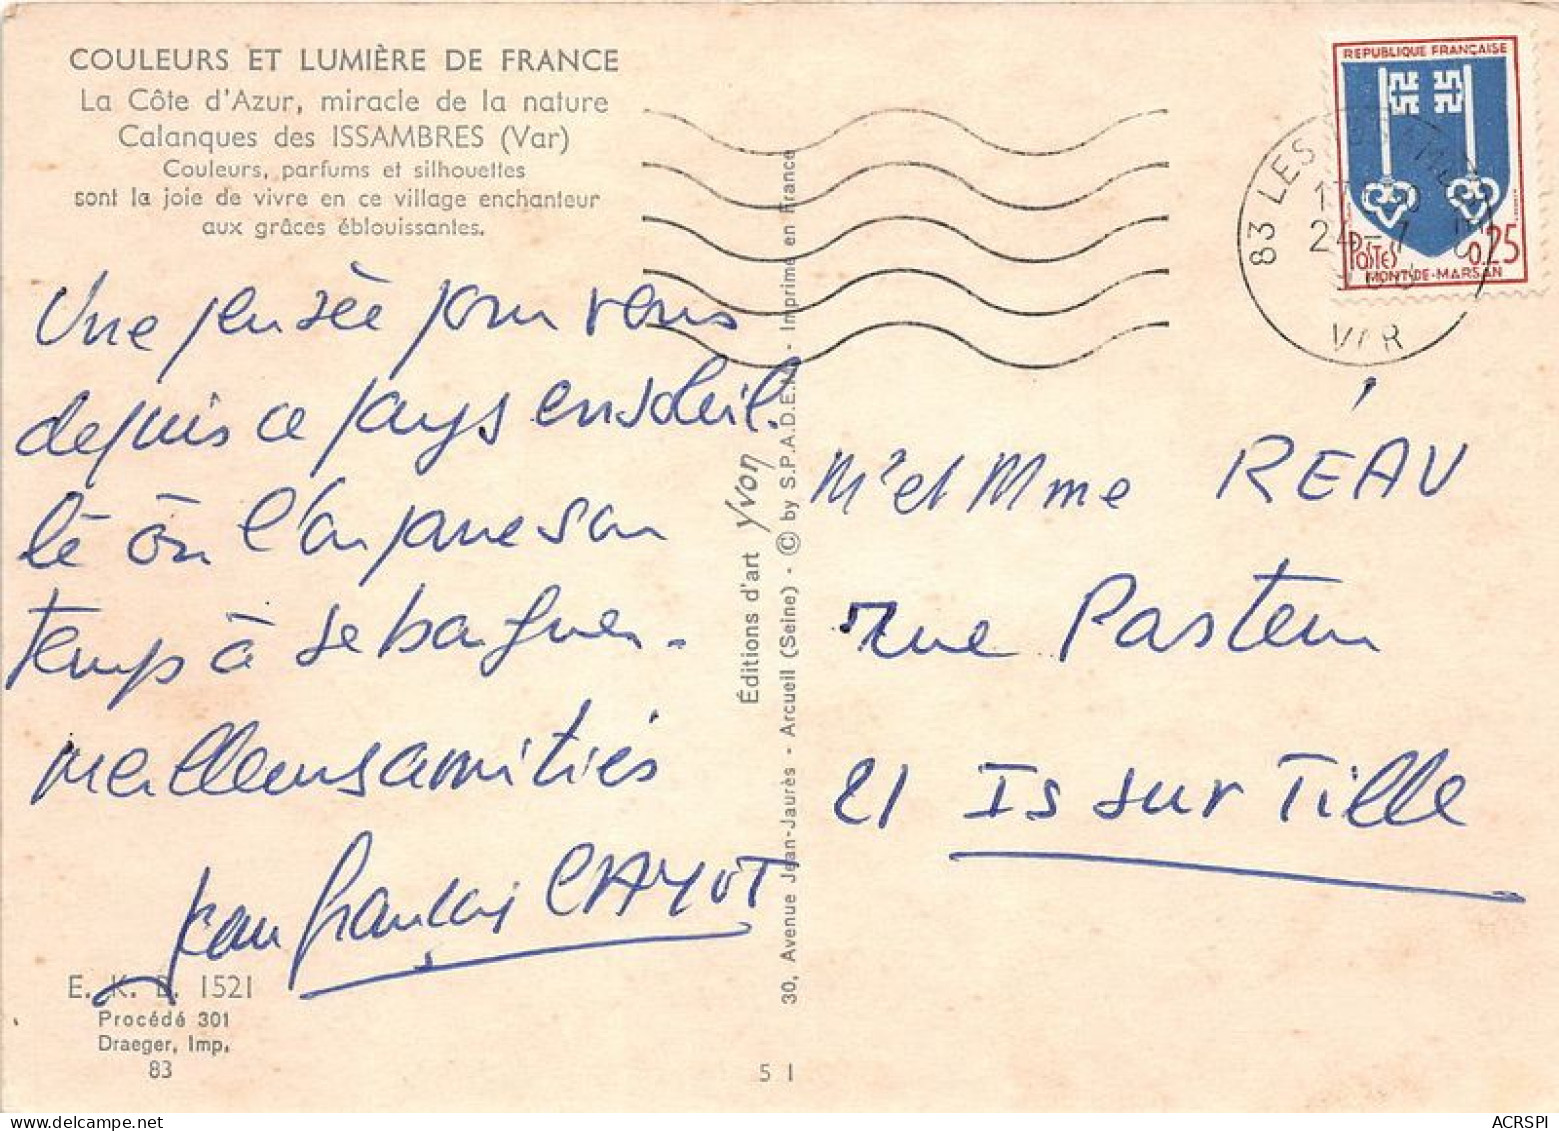 COULEURS ET LUMIÈRE DE FRANCE
La Côte d'Azur, miracle de la nature
Calanques des ISSAMBRES (Var)
Couleurs, parfums et silhouettes
sont la joie de vivre en ce village enchanteur
aux grâces éblouissantes.
Une pensée pour vous
depuis ce pays ensoleil.
lé où l'on passe son
temps à se baigner.
meilleurs amitiés
Jean François CAYOT
E. K. B. 1521
Procédé 301
Draeger, Imp.
83
Éditions d'art Yvon
30, Avenue Jean-Jaurès - Arcueil (Seine) - © by S.P.A.D.E.M. - Imprimé en France
5 1
REPUBLIQUE FRANÇAISE
POSTES
0,25
MONT-DE-MARSAN
83 LES
24-7
VAR
Mr et Mme RÉAU
rue Pasteur
21 Is sur Tille
ACRSPI